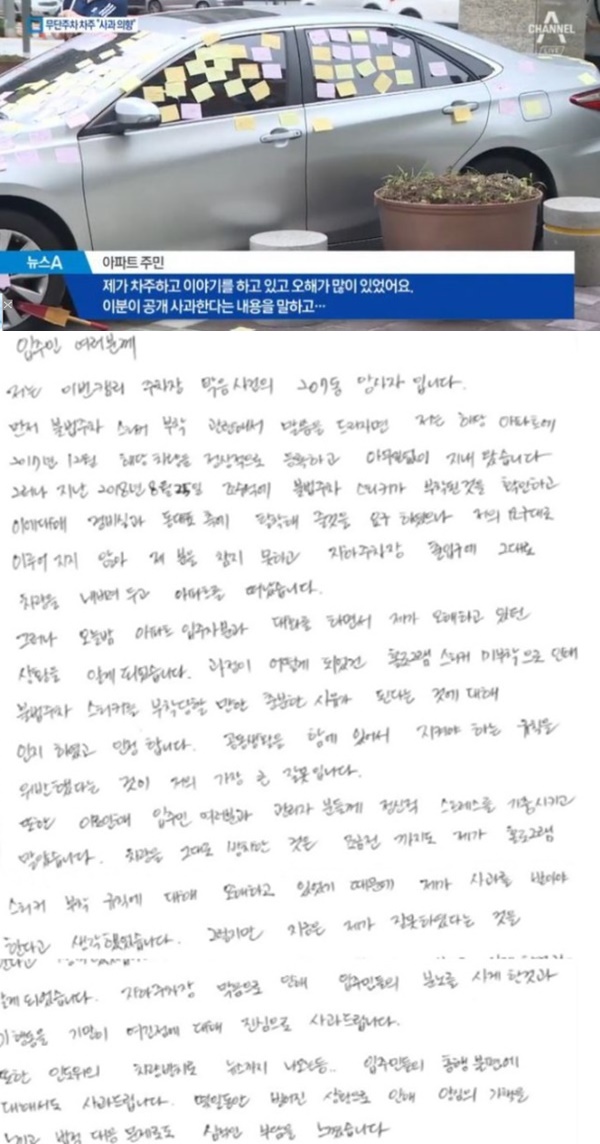 무단주차 차주 "사과 의향"
CHANNEL
A
LIVE
뉴스A
아파트 주민
제가 차주하고 이야기를 하고 있고 오해가 많이 있었어요.
이분이 공개 사과한다는 내용을 말하고…
입주민 여러분께
저는 이번 주차장 막음사건의 207동 당사자 입니다.
먼저 불법주차 스티커 부착 관련해서 말씀을 드리자면 저는 해당 아파트에
2017년 12월 해당 차량을 정상적으로 등록하고 지내 왔습니다
그러나 지난 2018년 8월 25일 불법주차 스티커가 부착된것을 확인하고
이에대해 경비실과 동대표 측에 탈착해 줄것을 요구 하였으나 저의 요구대로
이루어 지지 않아 제 분을 참지 못하고 지하주차장 출입구에 그대로
차량을 내버려 두고 아파트를 떠났습니다.
그러나 오늘밤 아파트 입주자분과 대화를 하면서 제가 오해하고 있던
상황을 알게 되었습니다. 과정이 어떻게 되었건 홀로그램 스티커 미부착으로 인해
불법주차 스티커를 부착당할 만한 충분한 사유가 된다는 것에 대해
인지 하였고 인정 합니다. 공동생활을 함에 있어서 지켜야 하는 규칙을
위반했다는 것이 저의 가장 큰 잘못입니다.
또한 이로인해 입주민 여러분과 관리자 분들께 정신적 스트레스를 가중시키고
말았습니다. 차량을 그대로 방치한 것은 조금전 까지도 제가 홀로그램
스티커 부착 규칙에 대해 오해하고 있었기 때문에 제가 사과를 받아야
한다고 생각했었습니다. 그렇지만 지금은 제가 잘못하였다는 것을
알게 되었습니다. 지하주차장 막음으로 인해 입주민들의 분노를 사게 한것과
대해 진심으로 사과드립니다.
또한 인도위의 차량방치로 뉴스까지 나오는등.. 입주민들의 통행 불편에
대해서도 사과드립니다. 몇일동안 벌어진 상황으로 인해 양심의 가책을
느끼고 법적 대응 문제로도 심적인 부담을 느꼈습니다